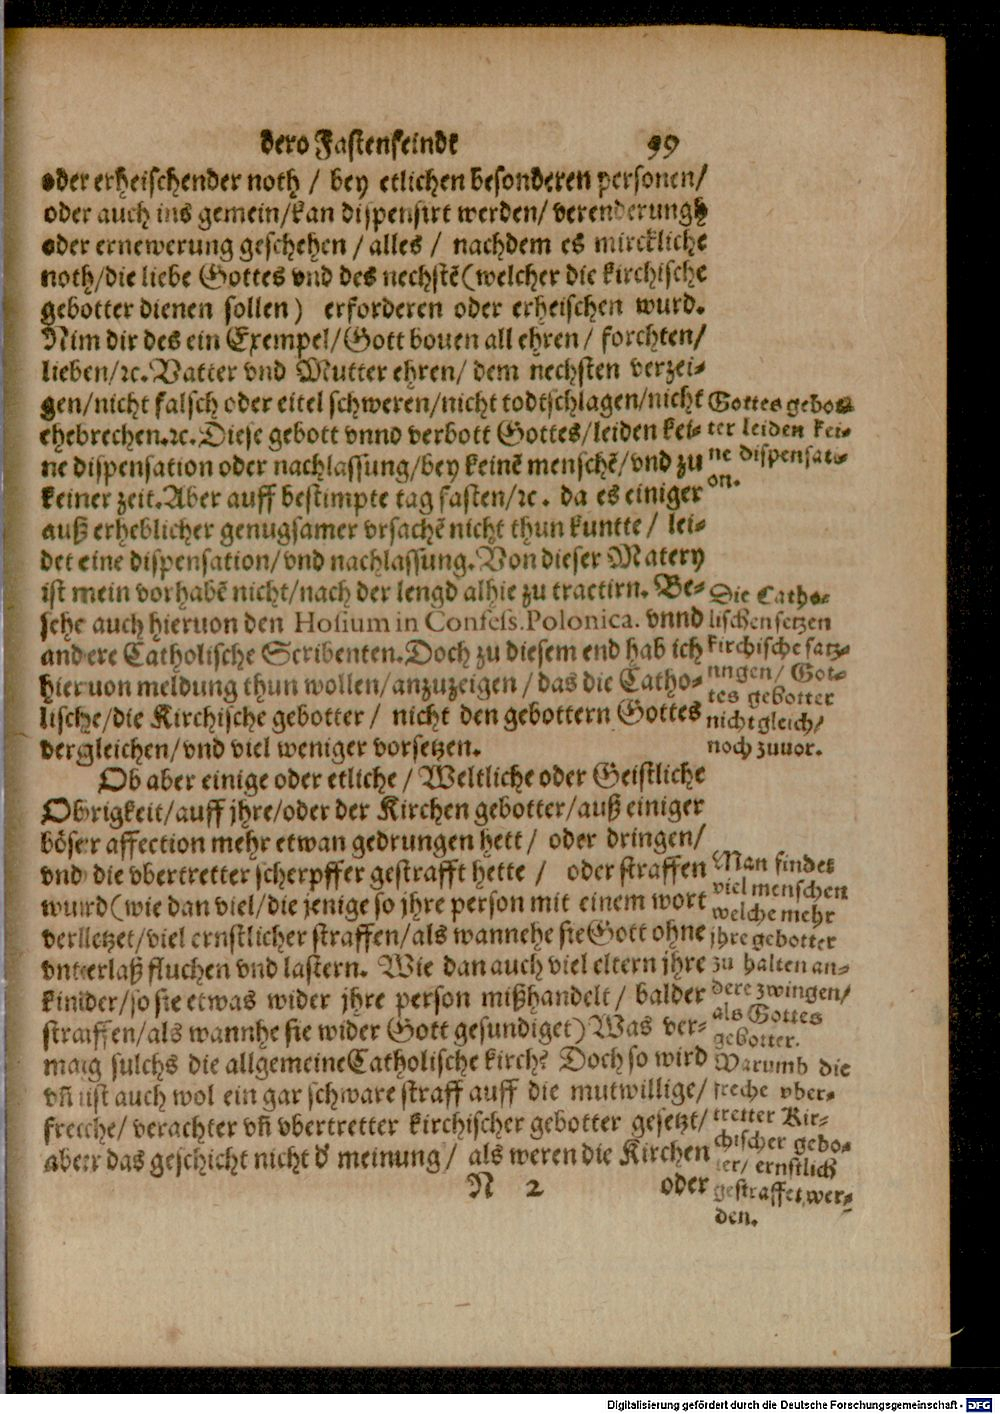 dero Fastenfeindt 99
oder erheischender noth / bey etlichen besonderen personen/
oder auch ins gemein/kan dispensirt werden/ verenderungh
oder ernewerung geschehen / alles / nachdem es mirckliche
noth/die liebe Gottes vnd des nechstẽ (welcher die kirchische
gebotter dienen sollen) erforderen oder erheischen wurd.
Nim dir des ein Exempel/Gott bouen all ehren/ forchten/
lieben/ꝛc. Vatter vnd Mutter ehren/ dem nechsten verzei-
gen/nicht falsch oder eitel schweren/nicht todtschlagen/nicht
ehebrechen.ꝛc. Diese gebott vnnd verbott Gottes/leiden kei-
ne dispensation oder nachlassung/bey keinẽ menschẽ/vnd zu
keiner zeit. Aber auff bestimpte tag fasten/ꝛc. da es einiger
auß erheblicher genugsamer vrsachẽ nicht thun kuntte / lei-
det eine dispensation/vnd nachlassung. Von dieser Matery
ist mein vorhabẽ nicht/nach der lengd alhie zu tractirn. Be-
sehe auch hieruon den Hosium in Confess. Polonica. vnnd
andere Catholische Scribenten. Doch zu diesem end hab ich
hieruon meldung thun wollen/anzuzeigen / das die Catho-
lische/die Kirchische gebotter / nicht den gebottern Gottes
vergleichen/vnd viel weniger vorsetzen.
Ob aber einige oder etliche / Weltliche oder Geistliche
Obrigkeit/auff jhre/oder der Kirchen gebotter/auß einiger
böser affection mehr etwan gedrungen hett / oder dringen/
vnd die vbertretter scherpffer gestrafft hette / oder straffen
wurd (wie dan viel/die jenige so jhre person mit einem wort
verlletzet/viel ernstlicher straffen/als wannehe sie Gott ohne
vnterlaß fluchen vnd lastern. Wie dan auch viel eltern jhre
kinider/so sie etwas wider jhre person mißhandelt / balder
straffen/als wannhe sie wider Gott gesundiget) Was ver-
maig sulchs die allgemeine Catholische kirch? Doch so wird
vñ ist auch wol ein gar schware straff auff die mutwillige/
freche/ verachter vñ vbertretter kirchischer gebotter gesetzt/
aber das geschicht nicht d' meinung / als weren die Kirchen
N 2 oder
Gottes gebot-
ter leiden kei-
ne dispensati-
on.
Die Catho-
lischen setzen
kirchische satz-
ungen / Got-
tes gebotter
nicht gleich/
noch zuuor.
Man findet
viel menschen
welche mehr
jhre gebotter
zu halten an-
dere zwingen/
als Gottes
gebotter.
Warumb die
freche vber-
tretter Kir-
chischer gebo-
ter/ ernstlich
gestraffet wer-
den.
Digitalisierung gefördert durch die Deutsche Forschungsgemeinschaft - DFG